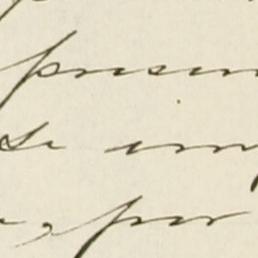 presen
se im
, por